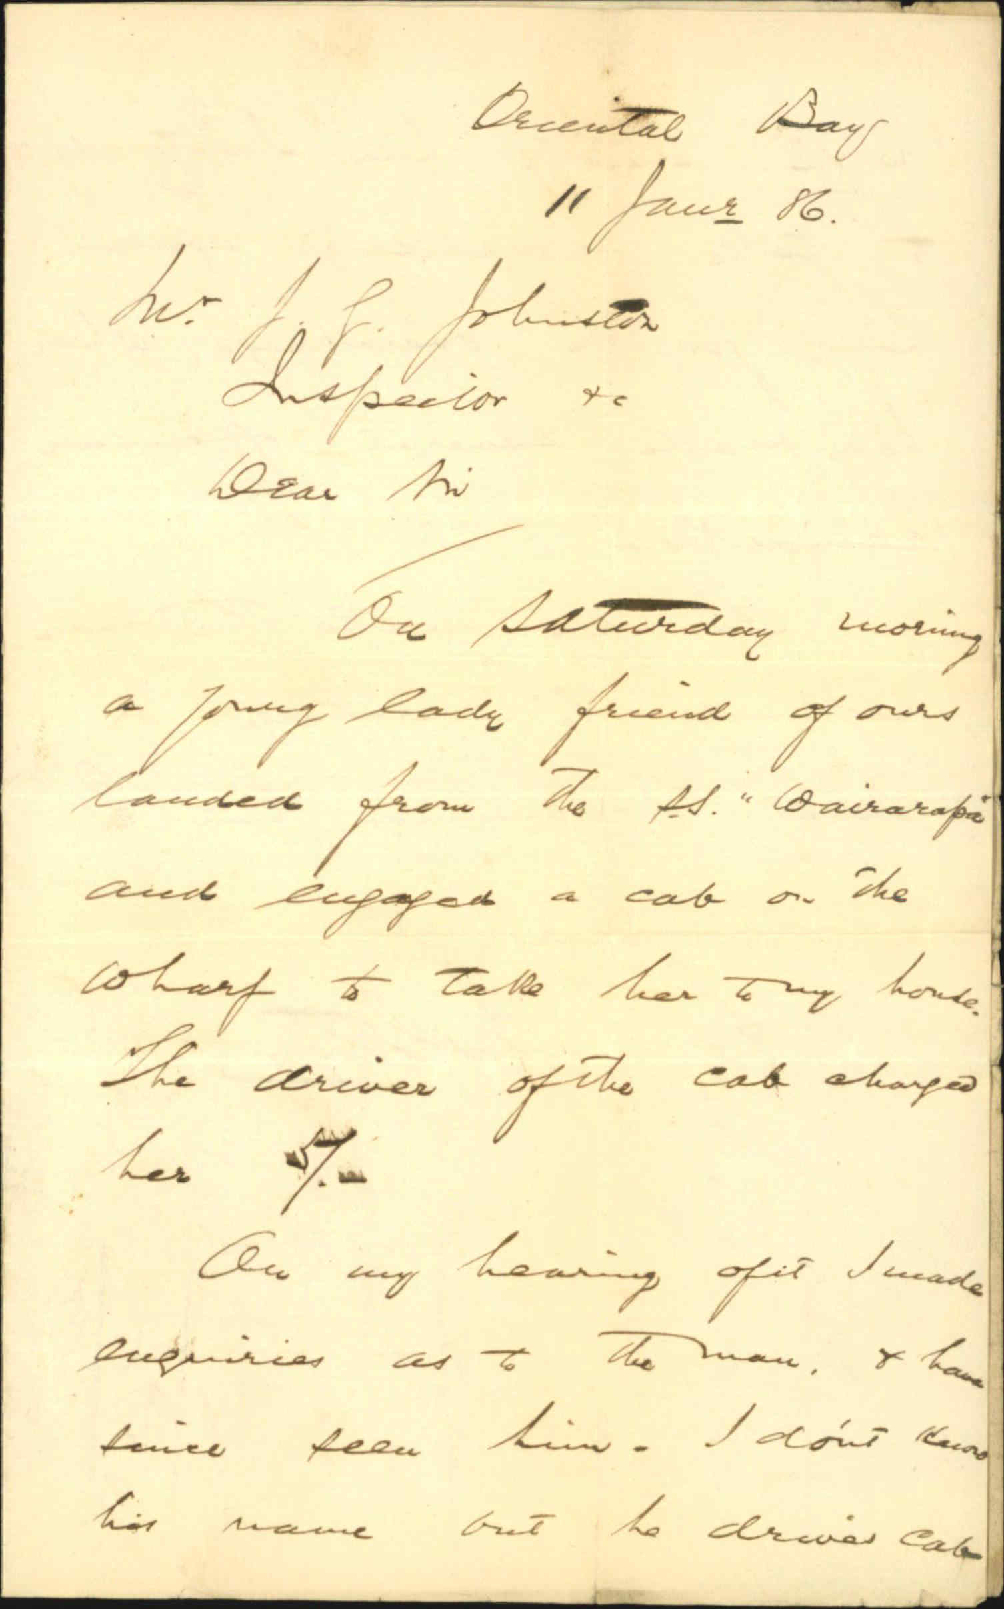 Oriental Bay
11 Janr 86.
Mr. J. G. Johnston
Inspector &c
Dear Sir
On Saturday morning
a young lady friend of ours
landed from the s.s. "Wairarapa"
and engaged a cab on the
wharf to take her to my house.
The driver of the cab charged
her 5/-
On my hearing of it I made
enquiries as to the man, & have
since seen him. I don't know
his name but he drives cab